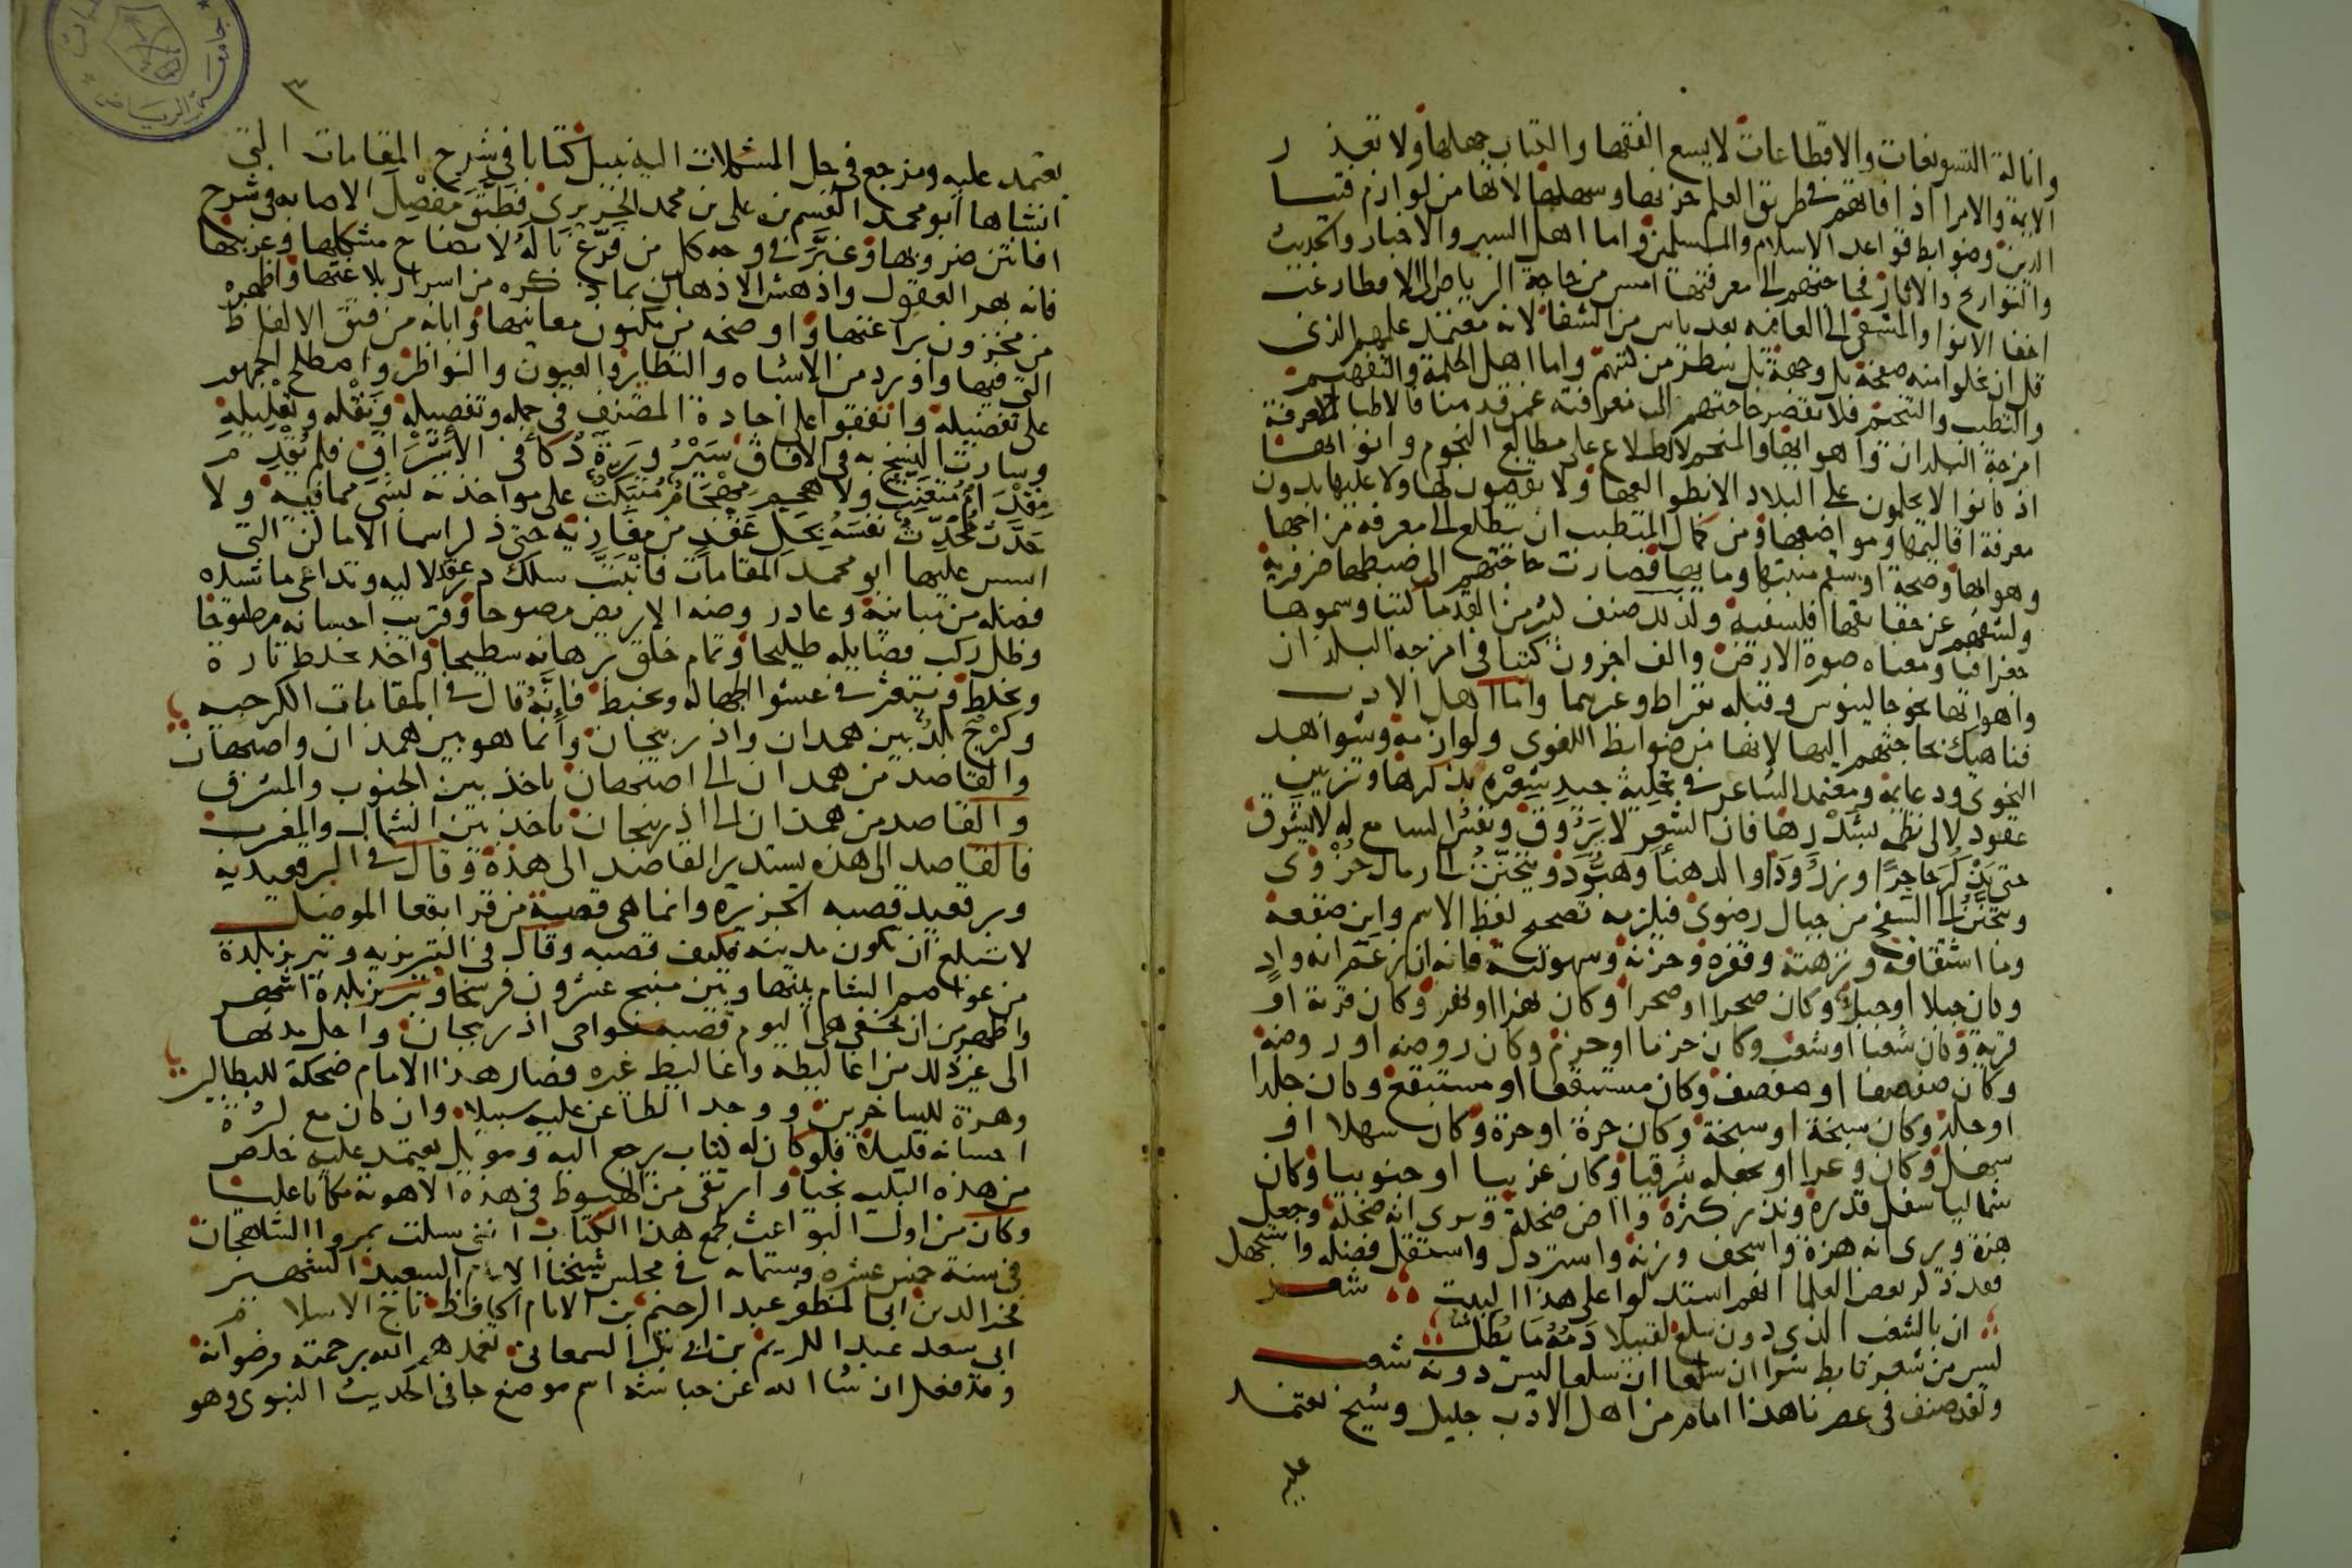 وانالة التسويغات والاقطاعات لا يسع الفقها والكتاب جهلها ولا تعذر
الايمة والامرا اذا فاتهم في طريق العلم حزنها وسهلها لانها من لوازم فتيا
الدين وضوابط قواعد الاسلام والمسلمين واما اهل السير والاخبار والحديث
والتواريخ والاثار فحاجتهم الى معرفتها امس من حاجة الرياض الى الامطار غب
اخفا الانوا والمشفى الى العافيه بعد ياس من الشفا لانه معتمد علمهم الذي
قل ان تخلوا منه صفحة بل وجهة بل سطر من كتبهم واما اهل الحكمة والتفهيم
والتطبب والتنجيم فلا تقصر حاجتهم الى معرفته عمن قدمنا فالاطبا لمعرفة
امزجة البلدان واهوايها والمنجم للاطلاع على مطالع النجوم وانوايها
اذ كانوا لا يحكمون على البلاد الا بطوالعها ولا يقضون لها ولا عليها بدون
معرفة اقاليمها ومواضعها ومن كمال المتطبب ان يتطلع الى معرفة مزاجها
وهوايها وصحة او سقم منبتها ومايها فصارت حاجتهم الى ضبطها ضرورية
وكشفهم عن حقايقها فلسفية ولذلك صنف كثير من القدما كتبا وسموها
جغرافيا ومعناه صورة الارض والف اخرون كتبا في امزجة البلدان
واهوايها نحو جالينوس وقبله بقراط وغيرهما واما اهل الادب
فناهيك بحاجتهم اليها لانها من ضوابط اللغوي ولوازمه وشواهد
النحوي ودعايمه ومعتمد الشاعر في تحلية جيد شعره بذكرها وتزيين
عقود لالي نظمه بشذرها فان الشعر لا يروق ونفس السامع له لا تشوق
حتى يذكر حاجرا وزرود والدهنا وهبود ويتحنن الى رمال حزوى
ويتحنن الى السفح من جبال رضوى فيلزمه تصحيح لفظ الاسم واين صقعه
وما اشتقاقه ونزهته وقفره وحزنه وسهولته فانه ان زعم انه واد
وكان جبلا او جبل وكان صحرا او صحرا وكان نهرا او نهر وكان قرية او
قرية وكان شعبا او شعب وكان حزما او حزم وكان روضه او روضة
وكان صفصفا او صفصف وكان مستنقعا او مستنقع وكان جلدا
او جلد وكان سبخة او سبخة وكان حرة او حرة وكان سهلا او
سهل وكان وعرا او يجعله شرقيا وكان غربيا او جنوبيا وكان
شماليا سفل قدره ونذر كثره واض ضحكة ويرى انه ضحكة وجعل
هزة ويرى انه هزة واسخف وزنه واسترذل واستقل فضله واستجهل
فقد ذكر بعض العلما انهم استدلوا على هذا البيت شعر
ان بالشعب الذي دون سلع لقتيلا دمه ما يطل
ليس من شعر تابط شرا ان سلعا ليس دونه شعب
ولقد صنف في عصرنا هذا امام من اهل الادب جليل وشيخ يعتمد
عليه
٣
يعتمد عليه ومرجع في حل المشكلات اليه نبيل كتابا في شرح المقامات التي
انشاها ابو محمد القسم بن علي بن محمد الحريري فطبق مفصل الاصابه في شرح
افانين ضروبها وغبر في وجه كل من فرغ باله لايضاح مشكلها وغريبها
فانه بهر العقول واذهش الاذهان بما ذكره من اسرار بلاغتها واظهره
من مخزون براعتها واوضحه من مكنون معانيها وابانه من فتق الالفاظ
التي فيها واورد من الاشباه والنظاير والعيون والنواظر واصطلح الجمهور
على تفضيله واتفقوا على اجادة المصنف في جمله وتفصيله ونقله وتعليله
وسارت النسخ به في الافاق سير ورية ذكا في الاشراق فلم يقدم
مقدام متعنت ولا هجم مهجام متبكت على مواخذته بشي مما فيه ولا
حدث محدث نفسه بحل عقد من مفازيه حتى ذكر اسما الاماكن التي
اسس عليها ابو محمد المقامات فانبت سلك در عقد لاليه وتداعى ما شيده
فضله من مبانيه وعادر وضه الاريض مصوحا وقريب احسانه مطوحا
وظل ركب فضايله طليحا وتمام خلق برهانه سطيحا واخذ يخلط تارة
ويخلط ويتعثر في عشوا الجهاله ويخبط فانه قال في المقامات الكرجيه
وكرج بلد بين همدان واذربيجان وانما هو بين همدان واصبهان
والقاصد من همدان الى اصبهان ياخذ بين الجنوب والمشرق
والقاصد من همذان الى اذربيجان ياخذ بين الشمال والمغرب
فالقاصد الى هذه يستدبر القاصد الى هذه وقال في البرقعيدية
وبرقعيد قصبه الجزيرة وانما هي قصبة من قرا بقعا الموصل
لا تبلغ ان تكون مدينه فكيف قصبه وقال في التبريزيه وتبريز بلدة
من عواصم الشام بينها وبين منبج عشرون فرسخا وتبريز بلدة اشهر
واظهر من ان تخفى هي اليوم قصبه نواحي اذربيجان واجل مدنها
الى غير ذلك من اغاليطه واغاليط غيره فصار هذا الامام ضحكة للبطالين
وهزة للساخرين ووجد الطاعن عليه سبيلا وان كان مع كثرة
احسانه قليلا فلو كان له كتاب يرجع اليه وموئل يعتمد عليه خلص
من هذه البليه نجيا وارتقى من الهبوط في هذه الاهوية مكانا عليا
وكان من اول البواعث لجمع هذا الكتاب انني سيلت بمرو الشاهجان
في سنة خمس عشره وستمايه في مجلس شيخنا الامام السعيد الشهيد
فخر الدين ابي المظفر عبد الرحيم بن الامام الحافظ تاج الاسلام
ابي سعد عبد الكريم بن ابي بكر السمعاني تغمدهم الله برحمته ورضوانه
وقد فعل ان شا الله عن حباشه اسم موضع جا في الحديث النبوي وهو